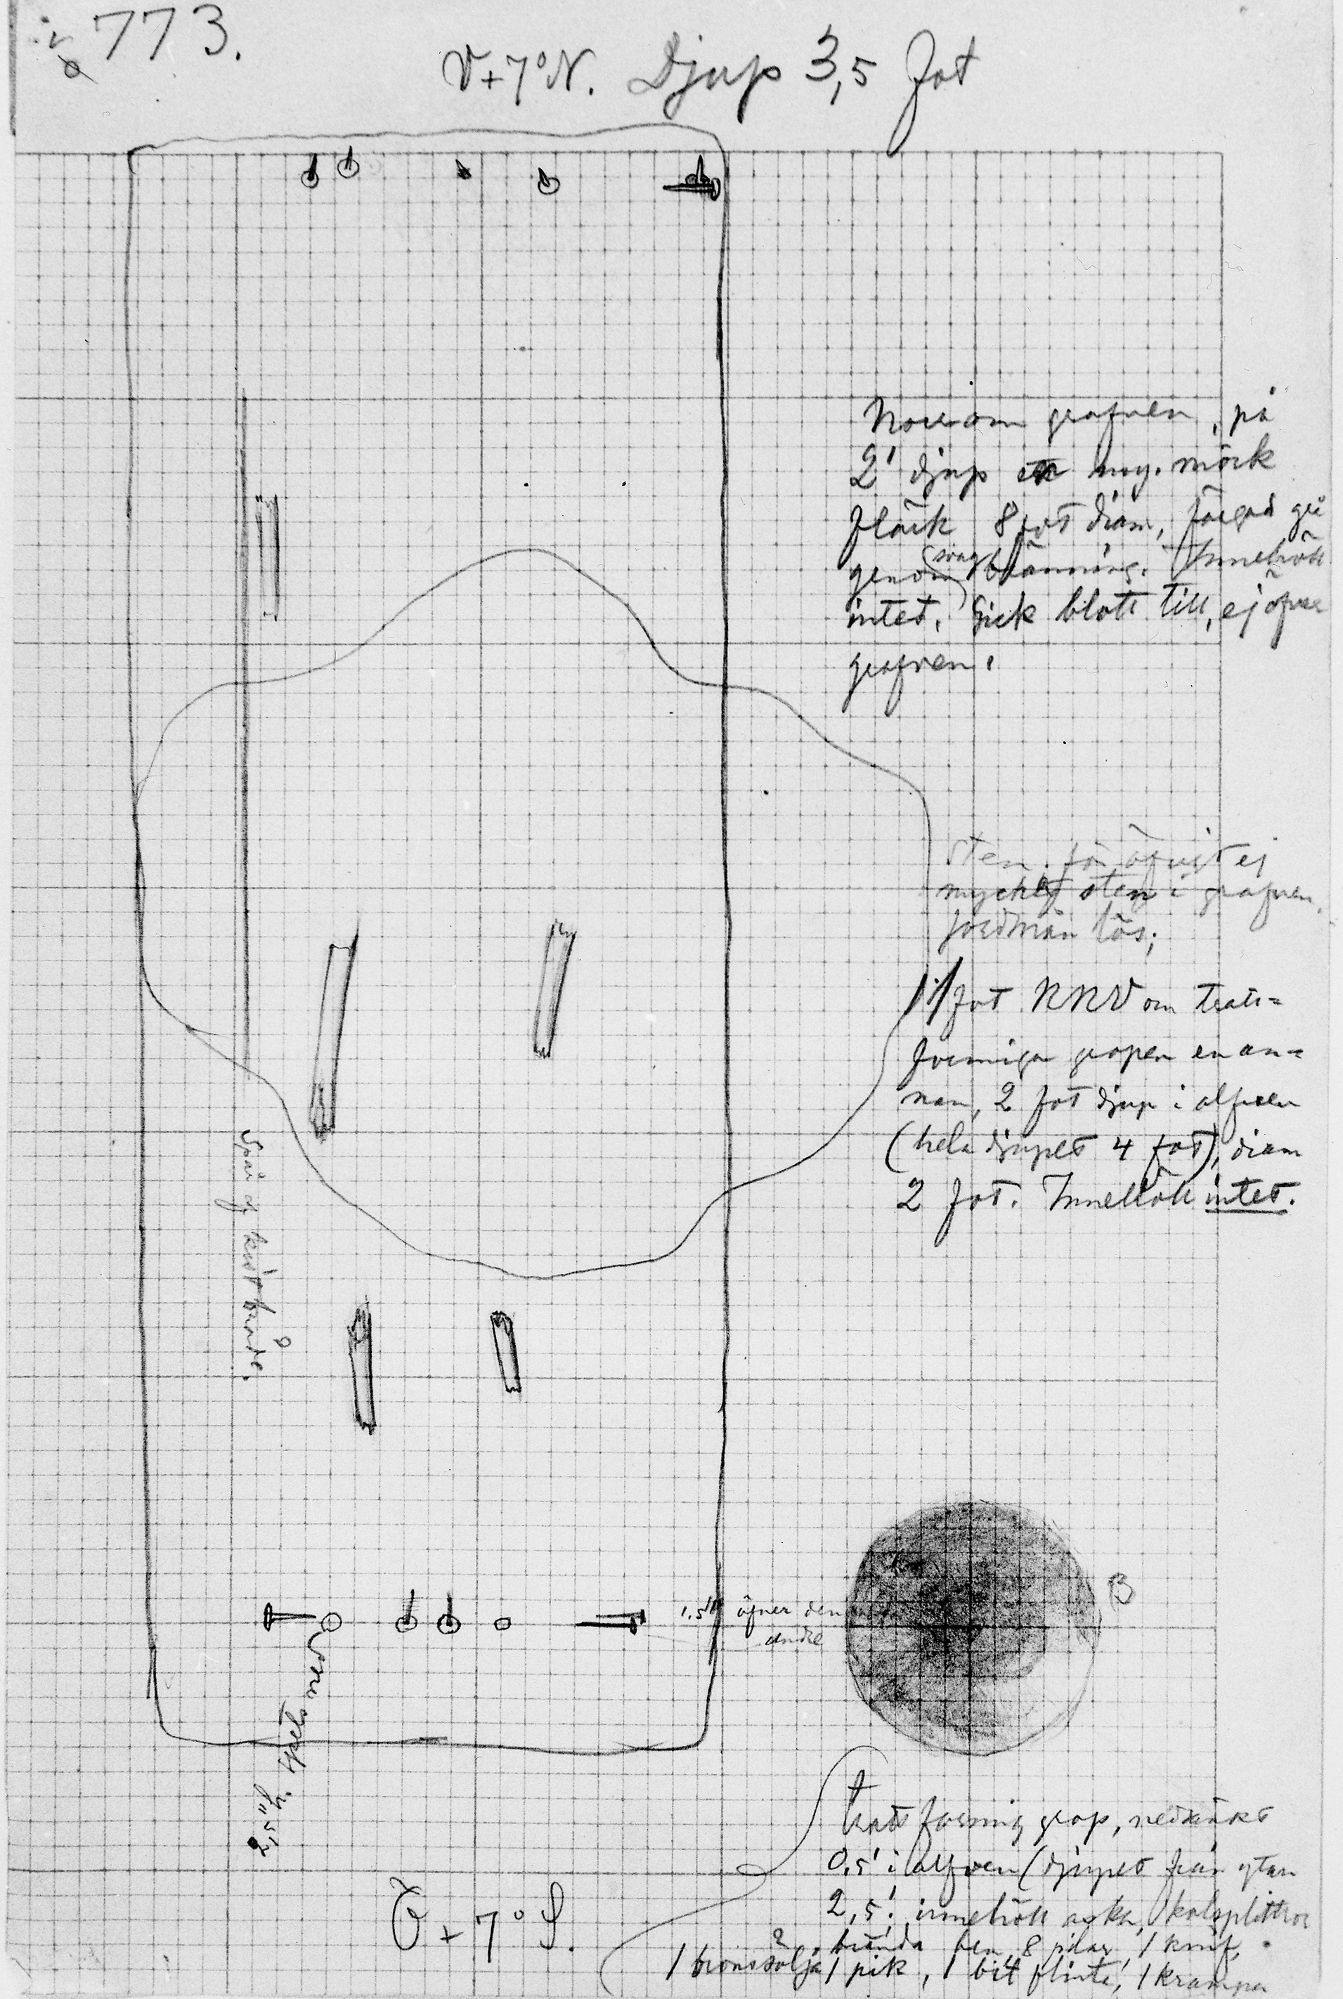 773.
V+7°N. Djup 3,5 fot
Norr om grafven, på
2' djup en my. mörk
fläck 8 fot diam, färgad
genom svag bränning. Innehöll
intet. Gick blott till, ej öfver
grafven.
Sten. för öfrigt ej
mycket sten i grafven,
jordmån lös;
1 fot NNV om tratt-
formiga gropen en an-
nan, 2 fot djup i alfven
(hela djupet 4 fot), diam
2 fot. Innehöll intet.
Spår af kistbräde.
1.5" öfver den
andre
B
med spets
2,5"
Trattformig grop, nedsänkt
0.5' i alfven (djupet från ytan
2,5'. innehöll aska, kolsplittror
brända ben, 8 pilar, 1 knif,
1 bronssölja 1 pik, 1 bit flinta, 1 krampa
Ö+7°S.